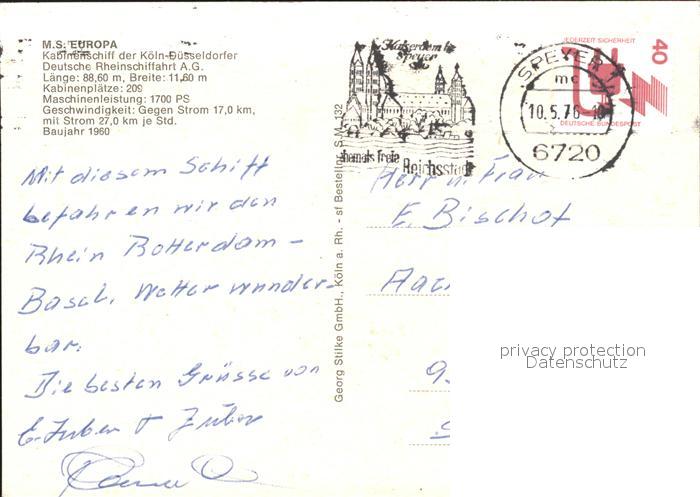 M.S. EUROPA
Kabinenschiff der Köln-Düsseldorfer
Deutsche Rheinschiffahrt A.G.
Länge: 88,60 m, Breite: 11,60 m
Kabinenplätze: 209
Maschinenleistung: 1700 PS
Geschwindigkeit: Gegen Strom 17,0 km,
mit Strom 27,0 km je Std.
Baujahr 1960
Mit diesem Schiff
befahren wir den
Rhein Rotterdam-
Basel. Wetter wunder-
bar.
Die besten Grüsse von
Georg Stilke GmbH., Köln a. Rh. - sf Bestellnr. S.M. 132
Kaiserdom
Speyer
ehemals freie
Reichsstadt
SPEYER
mc
10.5.76
6720
JEDERZEIT SICHERHEIT
40
DEUTSCHE BUNDESPOST
Herr u. Frau
E. Bischof
privacy protection
Datenschutz